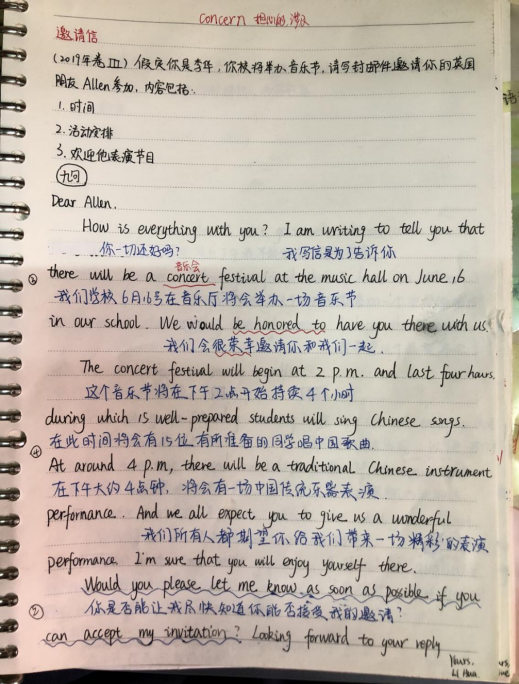 concern 担心的,涉及
邀请信
(2019年卷III) 假定你是李华,你校将举办音乐节,请写封邮件邀请你的英国
朋友Allen参加,内容包括:
1. 时间
2. 活动安排
3. 欢迎他表演节目
九问
Dear Allen.
How is everything with you? I am writing to tell you that
你一切还好吗? 我写信是为了告诉你
音乐会
③ there will be a concert festival at the music hall on June 16
我们学校6月16号在音乐厅将会举办一场音乐节
in our school. We would be honored to have you there with us.
我们会很荣幸邀请你和我们一起.
The concert festival will begin at 2 p.m. and last four hours.
这个音乐节将在下午2点开始持续4个小时
during which 15 well-prepared students will sing Chinese songs.
在此时间将会有15位有所准备的同学唱中国歌曲.
④
At around 4 p.m, there will be a traditional Chinese instrument
在下午大约4点钟, 将会有一场中国传统乐器表演.
perfornance. And we all expect you to give us a wonderful
我们所有人都期望你给我们带来一场精彩的表演
performance. I'm sure that you will enjoy yourself there.
Would you please let me know as soon as possible if you
② 你是否能让我尽快知道你能否接受我的邀请?
can accept my invitation? Looking forward to your reply
Yours,
Li Hua.